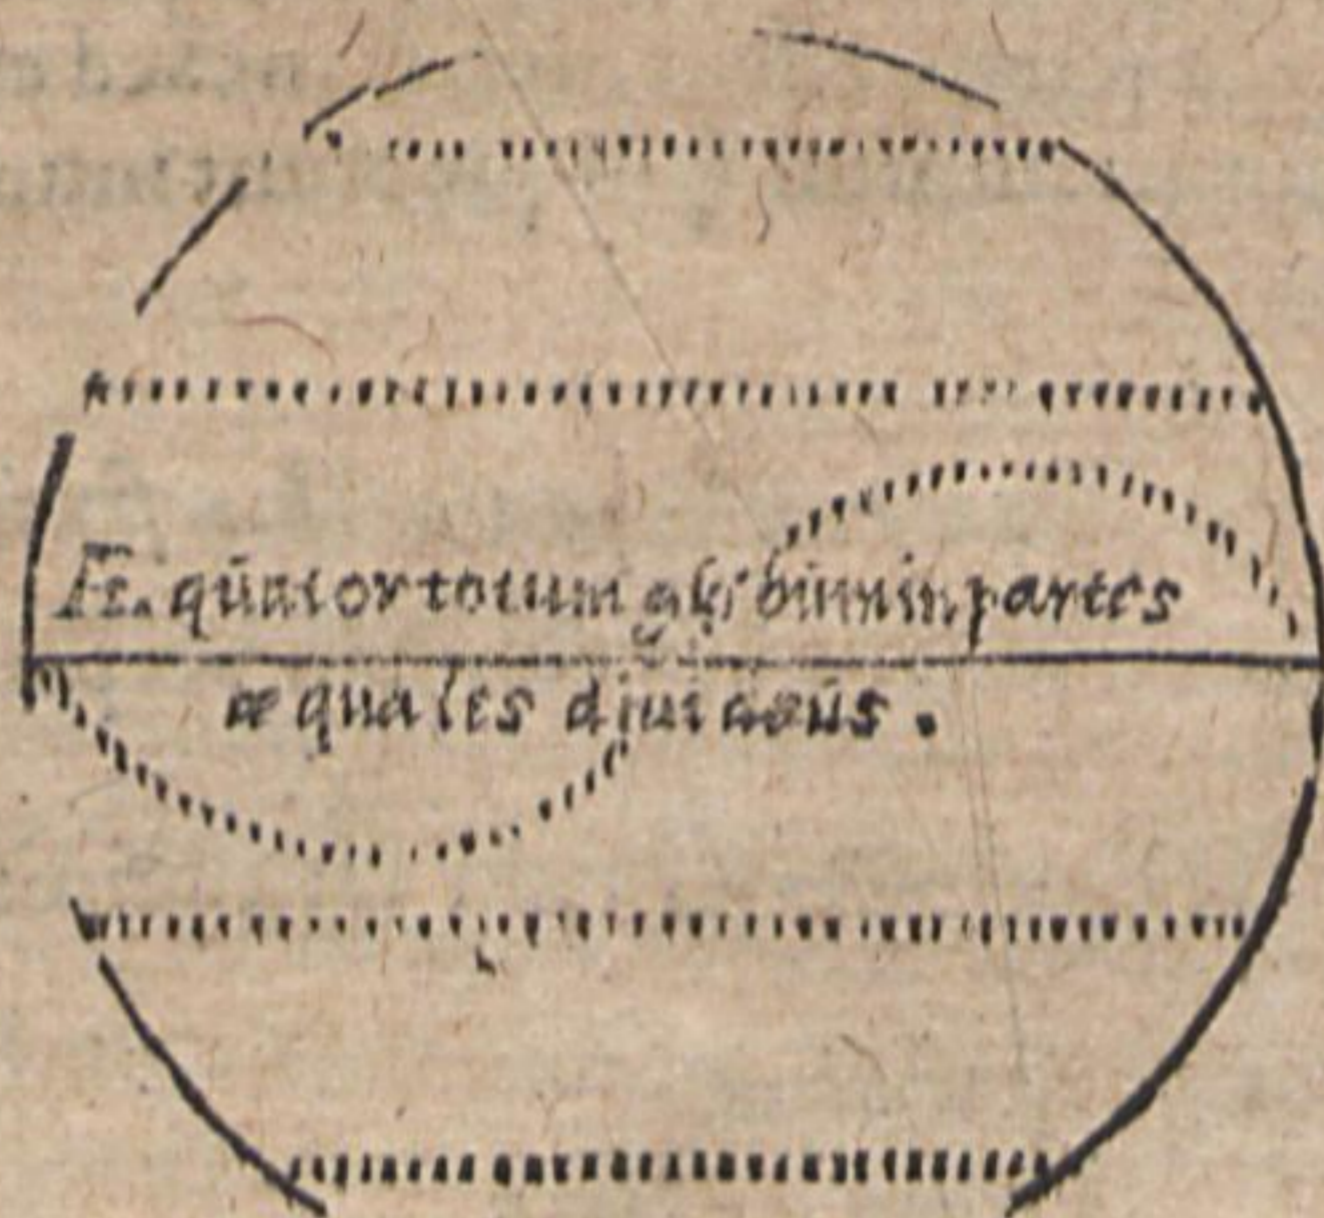 Æquator totum globum in partes
æquales diuidens.